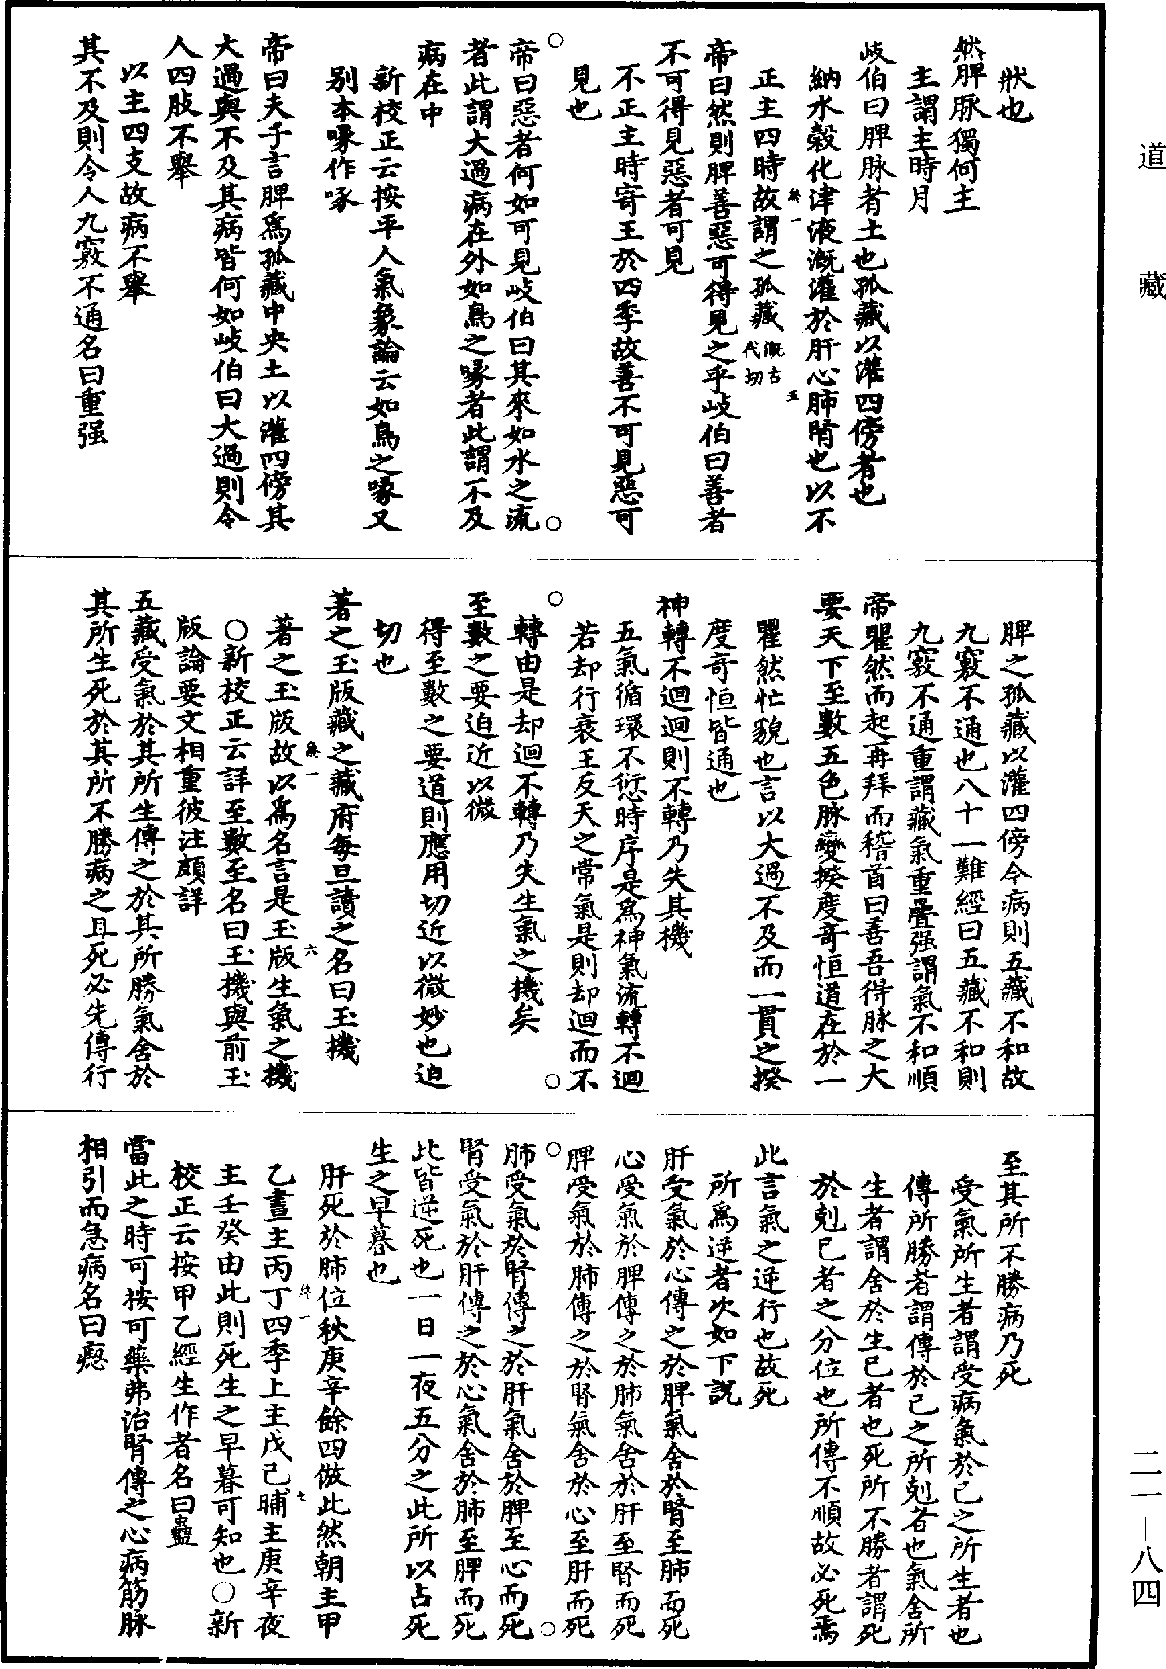 道藏
狀也
然脾脉獨何主
主謂主時月
岐伯曰脾脉者土也孤藏以灌四傍者也
納水穀化津液溉灌於肝心肺腎也以不
正主四時故謂之孤藏溉古代切
帝曰然則脾善惡可得見之乎岐伯曰善者
不可得見惡者可見
不正主時寄王於四季故善不可見惡可
見也
帝曰惡者何如可見岐伯曰其來如水之流
者此謂大過病在外如鳥之喙者此謂不及
病在中
新校正云按平人氣象論云如鳥之喙又
別本喙作啄
帝曰夫子言脾爲孤藏中央土以灌四傍其
大過與不及其病皆何如岐伯曰大過則令
人四肢不舉
以主四支故病不舉
其不及則令人九竅不通名曰重强
脾之孤藏以灌四傍今病則五藏不和故
九竅不通也八十一難經曰五藏不和則
九竅不通重謂藏氣重疊强謂氣不和順
帝瞿然而起再拜而稽首曰善吾得脉之大
要天下至數五色脉變揆度奇恒道在於一
瞿然忙貌也言以大過不及而一貫之揆
度奇恒皆通也
神轉不迴迴則不轉乃失其機
五氣循環不愆時序是爲神氣流轉不迴
若却行衰王反天之常氣是則却迴而不
轉由是却迴不轉乃失生氣之機矣
至數之要迫近以微
得至數之要道則應用切近以微妙也迫
切也
著之玉版藏之藏府每旦讀之名曰玉機
著之玉版故以爲名言是玉版生氣之機
○新校正云詳至數至名曰玉機與前玉
版論要文相重彼注頗詳
五藏受氣於其所生傳之於其所勝氣舍於
其所生死於其所不勝病之且死必先傳行
至其所不勝病乃死
受氣所生者謂受病氣於已之所生者也
傳所勝者謂傳於已之所剋者也氣舍所
生者謂舍於生已者也死所不勝者謂死
於剋已者之分位也所傳不順故必死焉
此言氣之逆行也故死
所爲逆者次如下說
肝受氣於心傳之於脾氣舍於腎至肺而死
心受氣於脾傳之於肺氣舍於肝至腎而死
脾受氣於肺傳之於腎氣舍於心至肝而死
肺受氣於腎傳之於肝氣舍於脾至心而死
腎受氣於肝傳之於心氣舍於肺至脾而死
此皆逆死也一日一夜五分之此所以占死
生之早暮也
肝死於肺位秋庚辛餘四倣此然朝主甲
乙晝主丙丁四季上主戊己晡主庚辛夜
主壬癸由此則死生之早暮可知也○新
校正云按甲乙經生作者名曰蠱
當此之時可按可藥弗治腎傳之心病筋脉
相引而急病名曰瘛
二一—八四